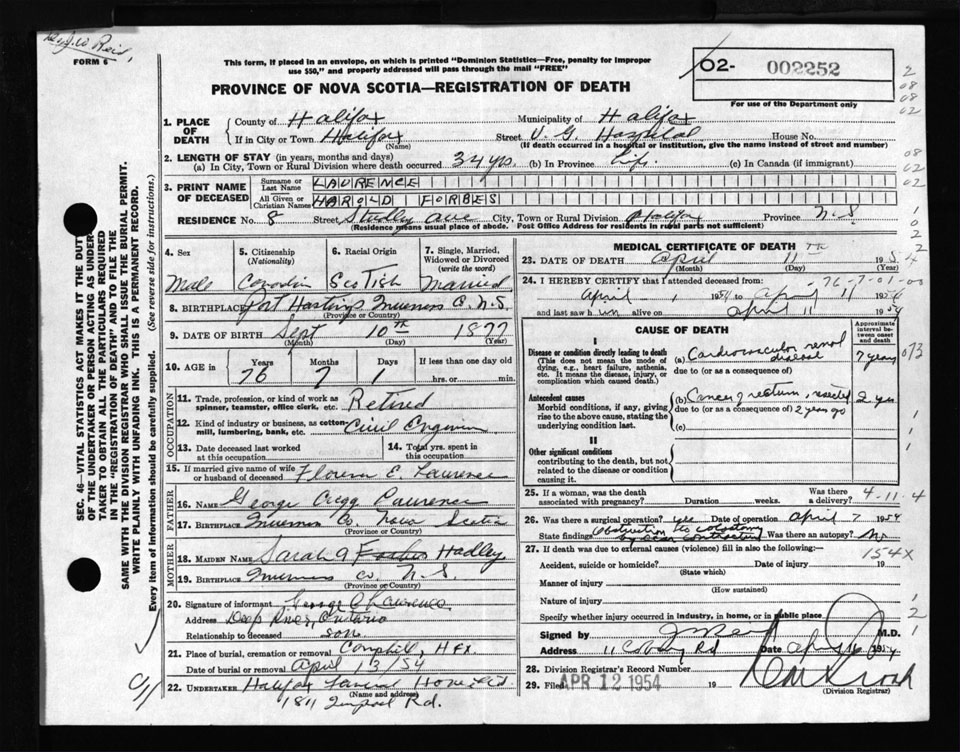 FORM 6
This form, if placed in an envelope, on which is printed "Dominion Statistics—Free, penalty for improper
use $50," and properly addressed will pass through the mail "FREE"
PROVINCE OF NOVA SCOTIA—REGISTRATION OF DEATH
02- 002252
For use of the Department only
1. PLACE OF DEATH
County of Halifax Municipality of Halifax
If in City or Town Halifax Street V. G. Hospital House No.
(Name) (If death occurred in a hospital or institution, give the name instead of street and number)
2. LENGTH OF STAY (in years, months and days)
(a) In City, Town or Rural Division where death occurred 34 yrs. (b) In Province Life (c) In Canada (if immigrant)
3. PRINT NAME OF DECEASED
Surname or Last Name LAURENCE
All Given or Christian Names HAROLD FORBES
RESIDENCE No. 8 Street Studley Ave City, Town or Rural Division Halifax Province N.S
(Residence means usual place of abode. Post Office Address for residents in rural parts not sufficient)
4. Sex
Male
5. Citizenship (Nationality)
Canadian
6. Racial Origin
Scotish
7. Single, Married, Widowed or Divorced (write the word)
Married
8. BIRTHPLACE Port Hastings Inverness Co. N.S.
(Province or Country)
9. DATE OF BIRTH Sept 10th 1877
(Month) (Day) (Year)
10. AGE in Years 76 Months 7 Days 1 If less than one day old
hrs. or min.
OCCUPATION
11. Trade, profession, or kind of work as spinner, teamster, office clerk, etc. Retired
12. Kind of industry or business, as cotton-mill, lumbering, bank, etc. Civil Engineer
13. Date deceased last worked at this occupation
14. Total yrs. spent in this occupation
15. If married give name of wife or husband of deceased Florence E. Laurence
FATHER
16. Name George Gregg Laurence
17. Birthplace Inverness Co. Nova Scotia
(Province or Country)
MOTHER
18. Maiden Name Sarah A Hadley
19. Birthplace Inverness Co. N.S.
(Province or Country)
20. Signature of informant George C Laurence
Address Deep River, Ontario
Relationship to deceased son
21. Place of burial, cremation or removal Camphill, Hfx.
Date of burial or removal April 13/54
22. UNDERTAKER Halifax Funeral Home Ltd.
(Name and address)
1811 Rd.
SEC. 46—VITAL STATISTICS ACT MAKES IT THE DUTY
OF THE UNDERTAKER OR PERSON ACTING AS UNDER-
TAKER TO OBTAIN ALL THE PARTICULARS REQUIRED
IN THE "REGISTRATION OF DEATH" AND TO FILE THE
SAME WITH THE DIVISION REGISTRAR WHO SHALL ISSUE THE BURIAL PERMIT.
WRITE PLAINLY WITH UNFADING INK. THIS IS A PERMANENT RECORD.
Every item of information should be carefully supplied. (See reverse side for instructions.)
MEDICAL CERTIFICATE OF DEATH
23. DATE OF DEATH April 11th 1954
(Month) (Day) (Year)
-76-7-01-00
24. I HEREBY CERTIFY that I attended deceased from:
April 1 1954 to April 11 1954
and last saw him alive on April 11 1954
CAUSE OF DEATH
Approximate interval between onset and death
I
Disease or condition directly leading to death
(This does not mean the mode of dying, e.g., heart failure, asthenia, etc. It means the disease, injury, or complication which caused death.)
(a) Cardiovascular renal disease 7 years 073
due to (or as a consequence of)
Antecedent causes
Morbid conditions, if any, giving rise to the above cause, stating the underlying condition last.
(b) Cancer rectum, resected 2 yrs
due to (or as a consequence of) 2 years ago
(c)
II
Other significant conditions
contributing to the death, but not related to the disease or condition causing it.
25. If a woman, was the death associated with pregnancy? Duration weeks. Was there a delivery? 4-11-4
26. Was there a surgical operation? yes Date of operation April 7 1954
State findings Obstruction to colostomy by scar contracture Was there an autopsy? No
27. If death was due to external causes (violence) fill in also the following:
154X
Accident, suicide or homicide? Date of injury 19
(State which)
Manner of injury
(How sustained)
Nature of injury
Specify whether injury occurred in industry, in home, or in public place
Signed by M.D.
Address Rd Date April 1954
28. Division Registrar's Record Number
29. Filed APR 12 1954 19
(Division Registrar)